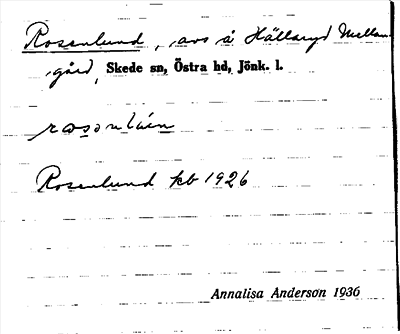 Rosenlund, avs å Hällaryd Mellan-
gård, Skede sn, Östra hd, Jönk. l.
Rosenlund kb 1926
Annalisa Anderson 1936